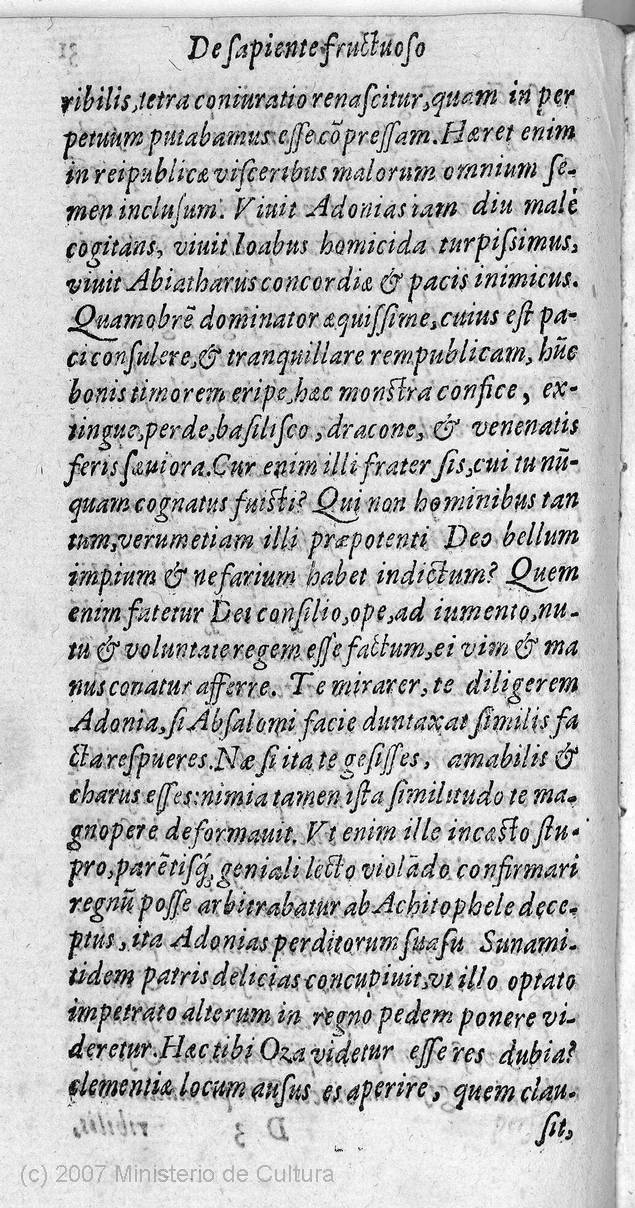 De sapiente fructuoso
ribilis, tetra coniuratio renascitur, quam in per
petuum putabamus esse cõpressam. Hæret enim
in reipublicæ visceribus malorum omnium se-
men inclusum. Viuit Adonias iam diu malè
cogitans, viuit Ioabus homicida turpissimus,
viuit Abiatharus concordiæ & pacis inimicus.
Quamobrẽ dominator æquissime, cuius est pa-
ci consulere, & tranquillare rempublicam, hũc
bonis timorem eripe, hæc monstra confice, ex-
tingue, perde, basilisco, dracone, & venenatis
feris sæuiora. Cur enim illi frater sis, cui tu nũ-
quam cognatus fuisti? Qui non hominibus tan
tum, verumetiam illi præpotenti Deo bellum
impium & nefarium habet indictum? Quem
enim fatetur Dei consilio, ope, ad iumento, nu-
tu & voluntate regem esse factum, ei vim & ma
nus conatur afferre. Te mirarer, te diligerem
Adonia, si Absalomi facie duntaxat similis fa
cta respueres. Næ si ita te gesisses, amabilis &
charus esses: nimia tamen ista similitudo te ma-
gnopere deformauit. Vt enim ille incæsto stu-
pro, parẽtisq́; geniali lecto violãdo confirmari
regnũ posse arbitrabatur ab Achitophele dece-
ptus, ita Adonias perditorum suasu Sunami-
tidem patris delicias concupiuit, vt illo optato
impetrato alterum in regno pedem ponere vi-
deretur. Hæc tibi Oza videtur esse res dubia?
clementiæ locum ausus es aperire, quem clau-
sit,
(c) 2007 Ministerio de Cultura